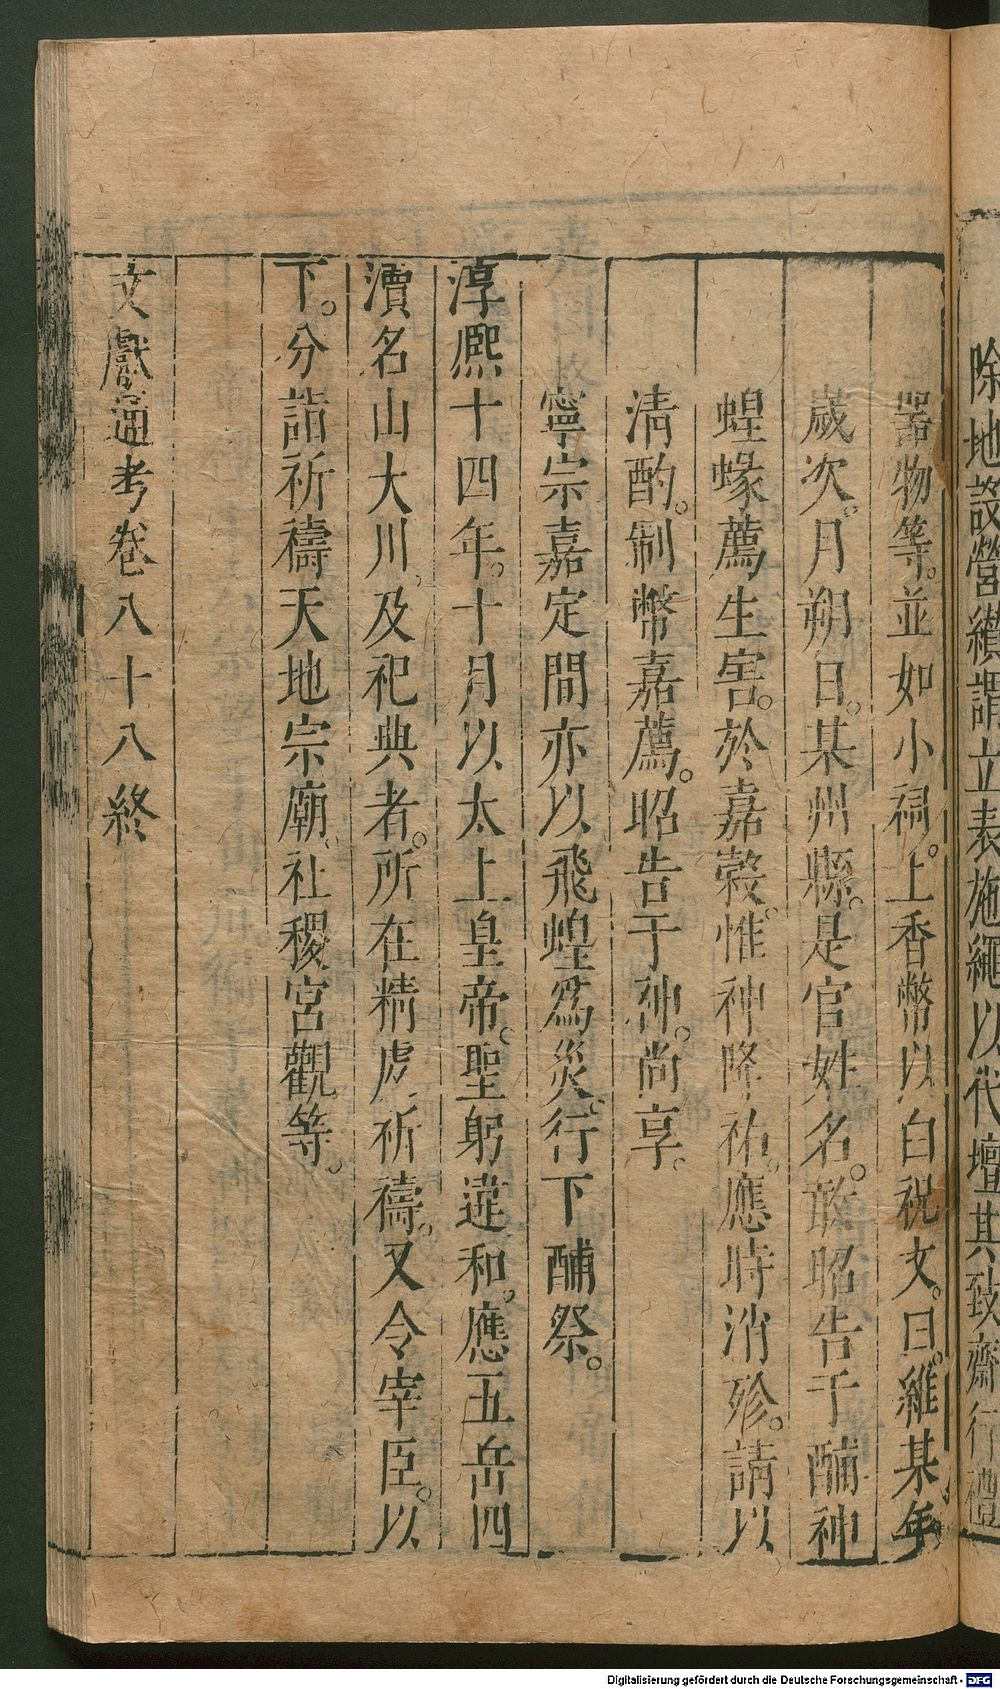 除地設營纉謂立表施繩以代壇其致齋行禮
器物等。並如小祠。上香幣以白祝文。曰。維某年。
歲次。月朔日。某州縣。是官姓名。敢昭告于酺神
蝗蝝薦生害。於嘉榖。惟神降祐。應時消殄。請以
清酌。制幣嘉薦。昭告于神。尚享。
寧宗嘉定間亦以飛蝗爲災。行下酺祭。
淳熙十四年。十月以太上皇帝。聖躬違和。應五岳四
瀆名山大川。及祀典者。所在精虔祈禱。又令宰臣。以
下。分詣祈禱天地宗廟。社稷宮觀等。
文獻通考卷八十八終
Digitalisierung gefördert durch die Deutsche Forschungsgemeinschaft - DFG